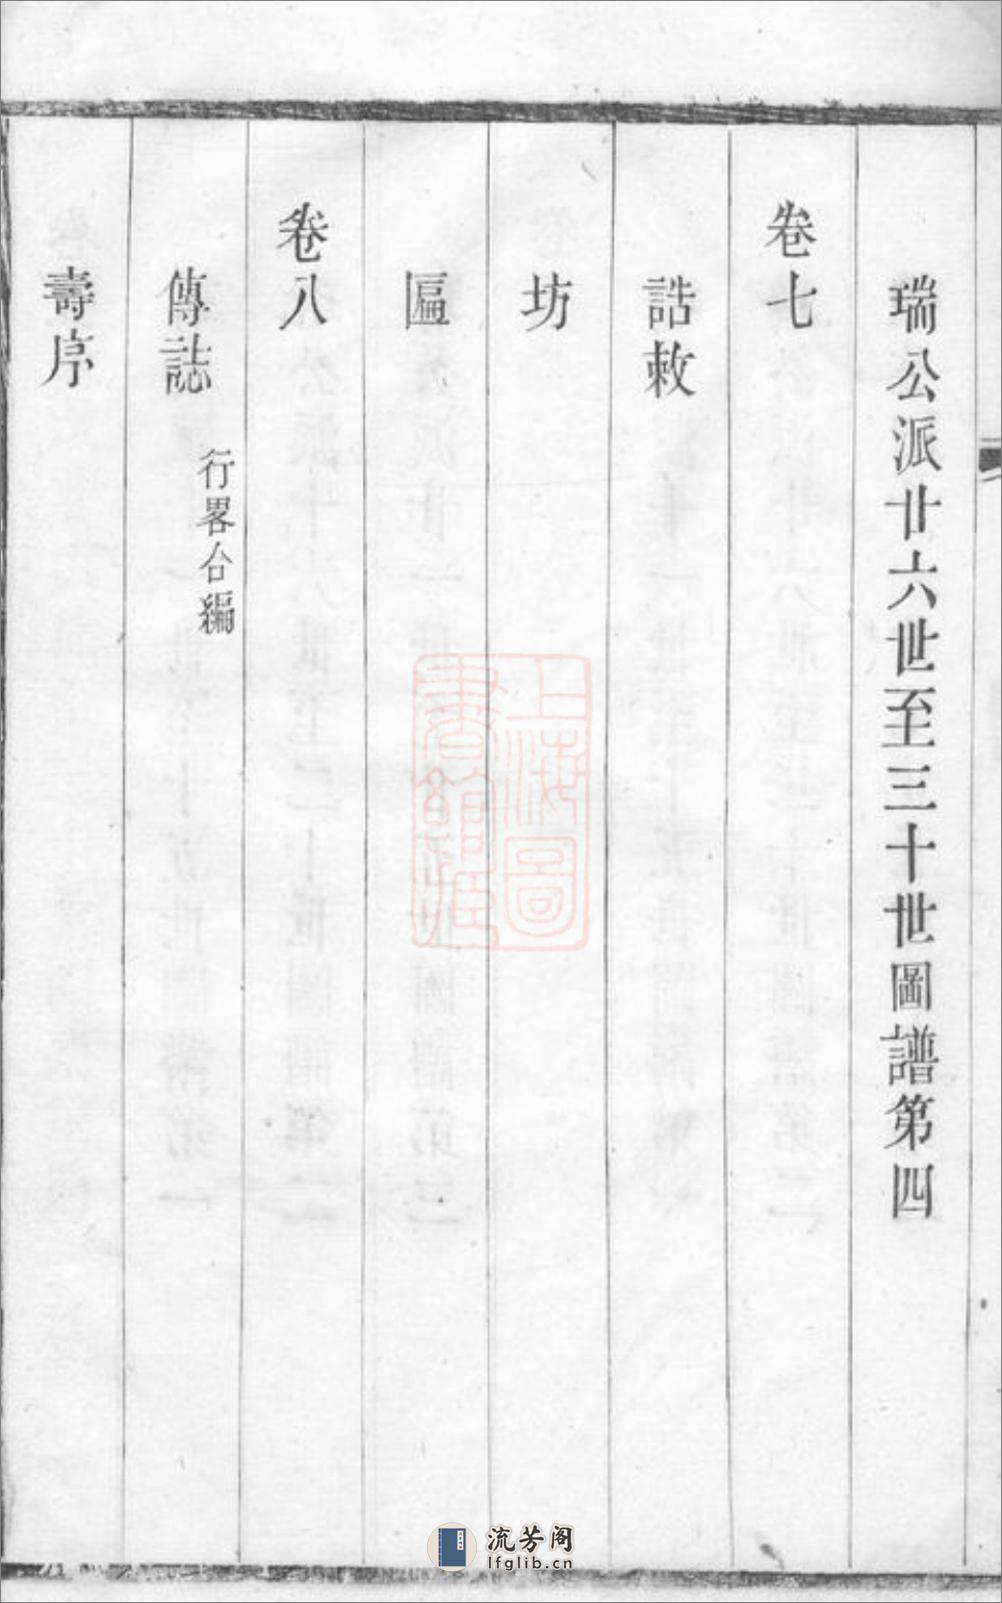 瑞公派廿六世至三十世圖譜第四
卷七
誥敕
坊
匾
卷八
傳誌 行畧合編
壽序
上海圖書館藏
流芳阁
lfglib.cn